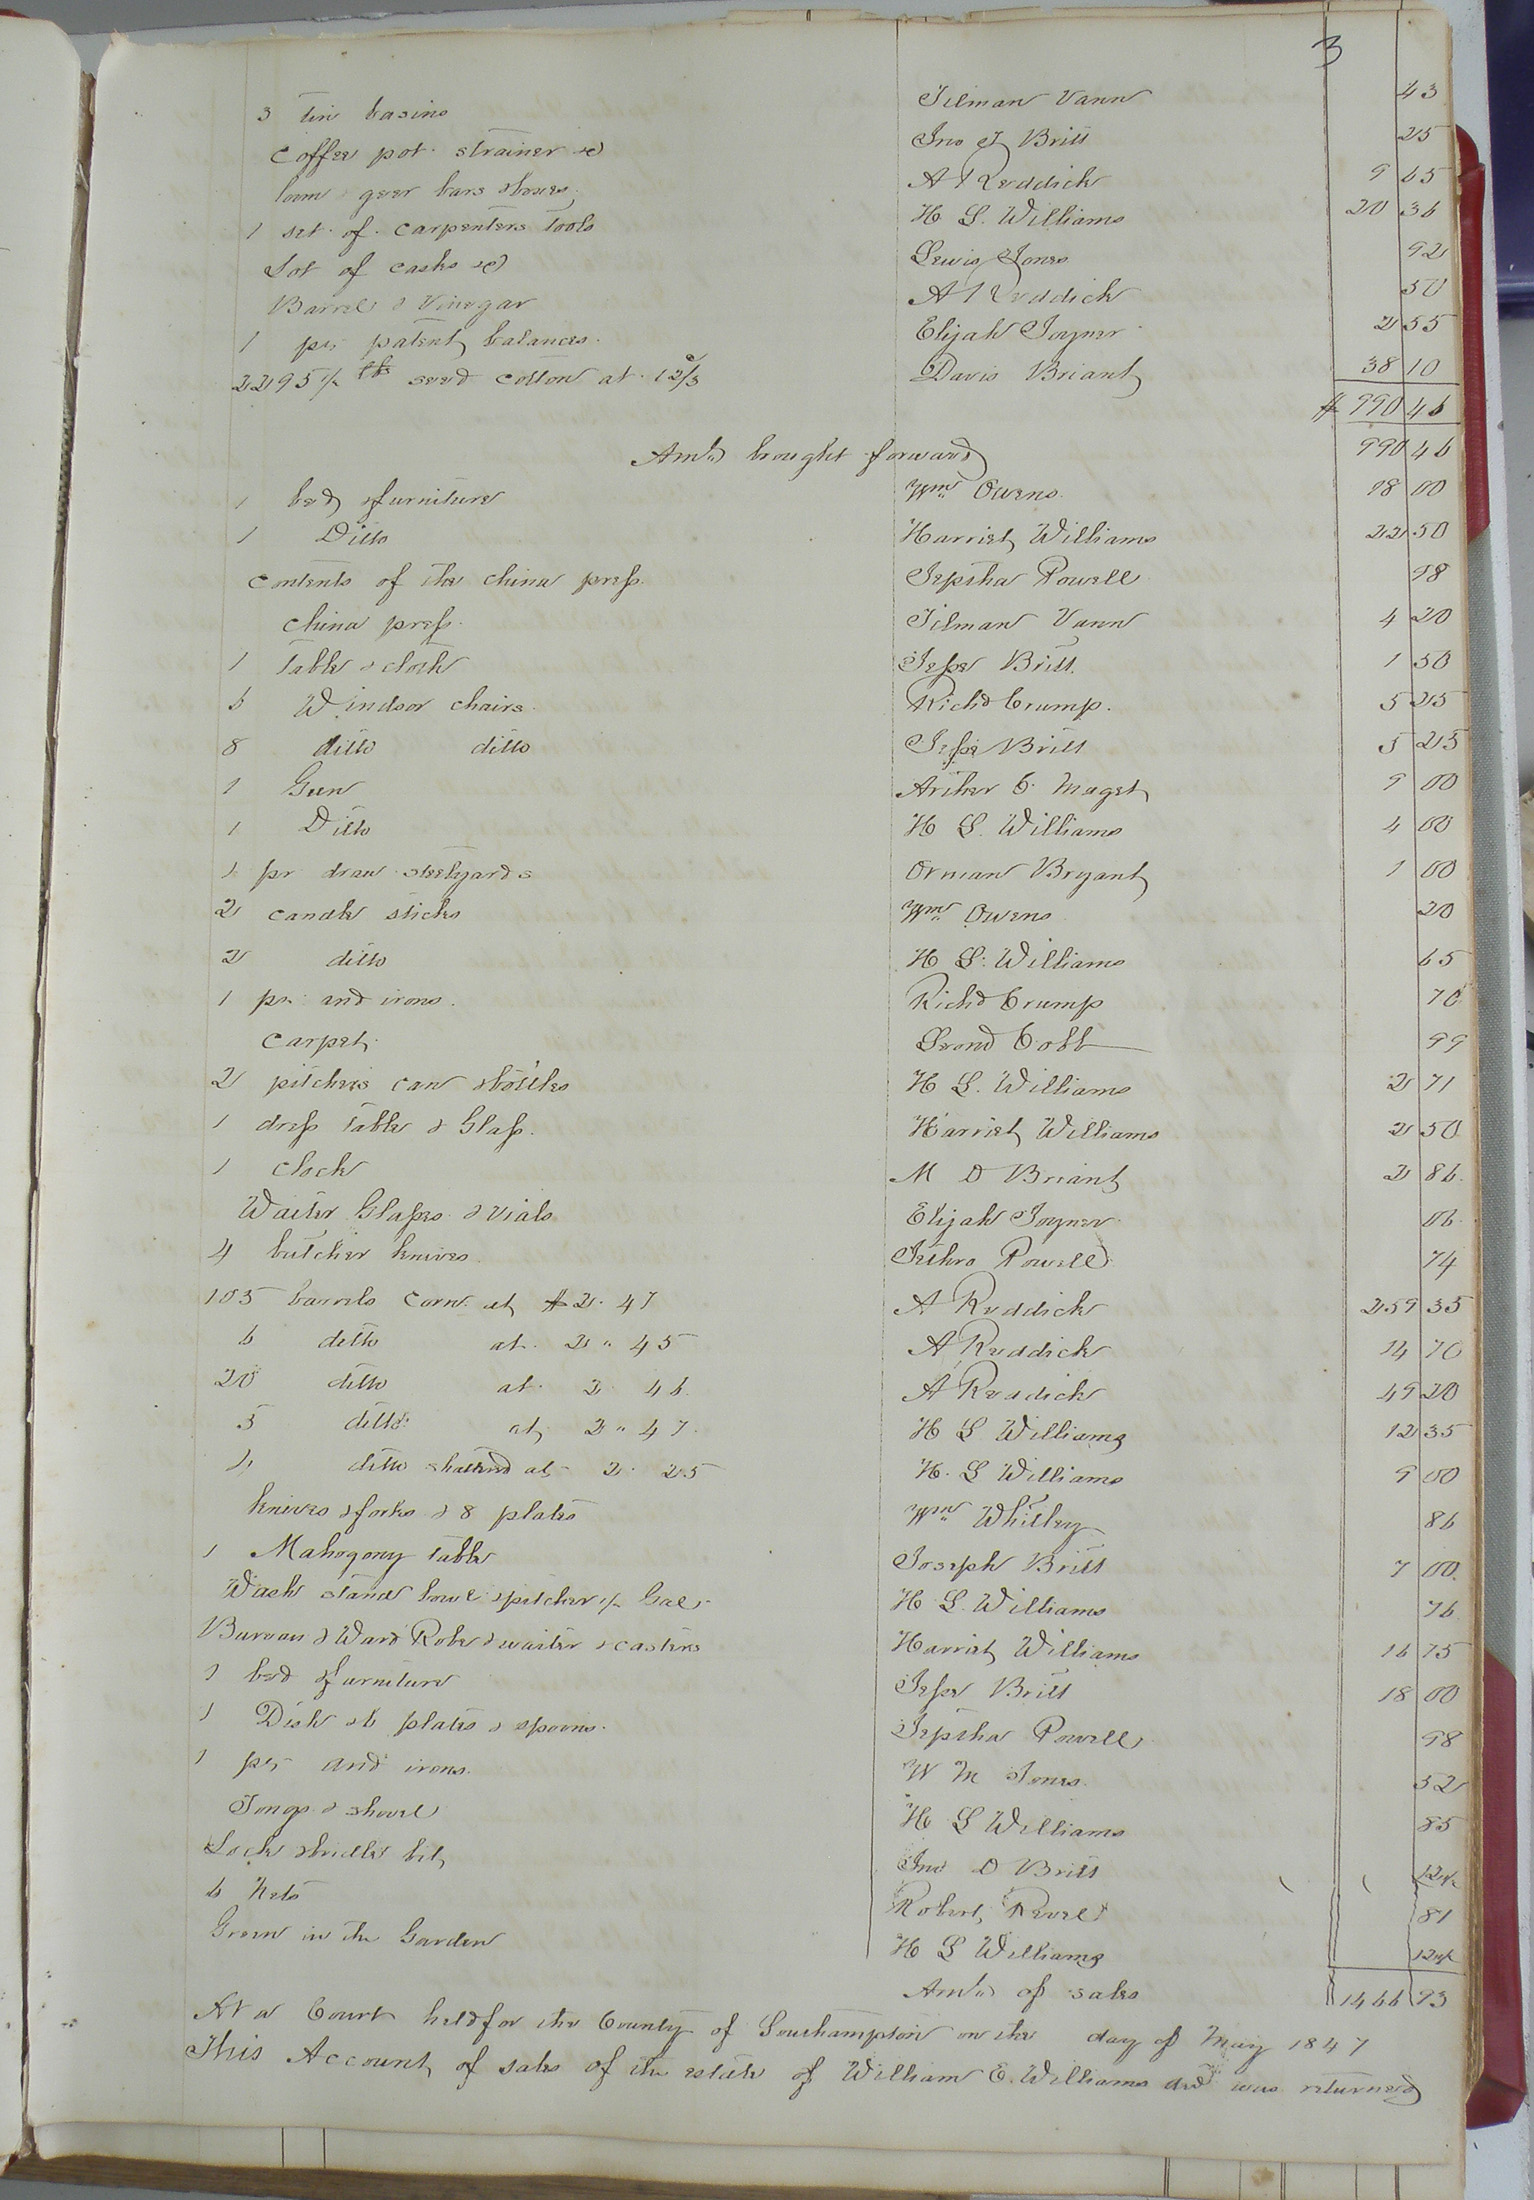 3
3 tin basins Tilman Vann 43
Coffee pot strainer &c Jno J Britt 25
loom geer bars & boxes A Reddick 9 65
1 set of carpenters tools H L Williams 20 36
Lot of casks &c Lewis Jones 92
Barrel & Vinegar A Reddick 50
1 pr patent balances Elijah Joyner 2 55
2295 1/2 lbs seed cotton at 1 2/3 c Davis Briant 38 10
$ 990 46
Amt brought forward 990 46
1 bed & furniture Wm Owens 18 00
1 Ditto Harriet Williams 22 50
Contents of the china press Jeptha Powell 98
China press Tilman Vann 4 20
1 table & cloth Jesse Britt 1 50
6 Windsor chairs Richd Crump 5 25
8 ditto ditto Jesse Britt 5 25
1 Gun Archer C. Maget 9 00
1 Ditto H L Williams 4 00
1 pr draw steelyards Orman Bryant 1 00
2 candle sticks Wm Owens 20
2 ditto H L. Williams 65
1 pr and irons Richd Crump 70
Carpet Cobb 99
2 pitchers can & bottles H L. Williams 2 71
1 dress table & Glass Harriet Williams 2 50
1 clock M D Briant 2 86
Waiter Glasses & vials Elijah Joyner 06
4 butcher knives Jethro Powell 74
105 barrels Corn at $2. 47 A Reddick 259 35
6 ditto at 2 " 45 A Reddick 14 70
20 ditto at 2 46 A Reddick 49 20
5 ditto at 2 " 47 H L Williams 12 35
4 ditto shattered at 2 25 H. L Williams 9 00
knives & forks & 8 plates Wm Whitley 86
1 Mahogony table Joseph Britt 7 00
Wash stand bowl & pitcher 1/2 Gal H L. Williams 76
Bureau & Ward Robe & waiter & casters Harriet Williams 16 75
1 bed & furniture Jesse Britt 18 00
1 Dish & 6 plates & spoons Jeptha Powell 98
1 pr and irons W M Jones 52
Tongs & shovel H L Williams 85
Lock & bridle bit Jno D Britt 12 1/2
6 Nets Robert Revel 81
Green in the Garden H L Williams 12 1/2
Amt of sales 1466 93
At a Court held for the County of Southampton on the day of May 1847
This Account of sales of the estate of William E. Williams decd was returned